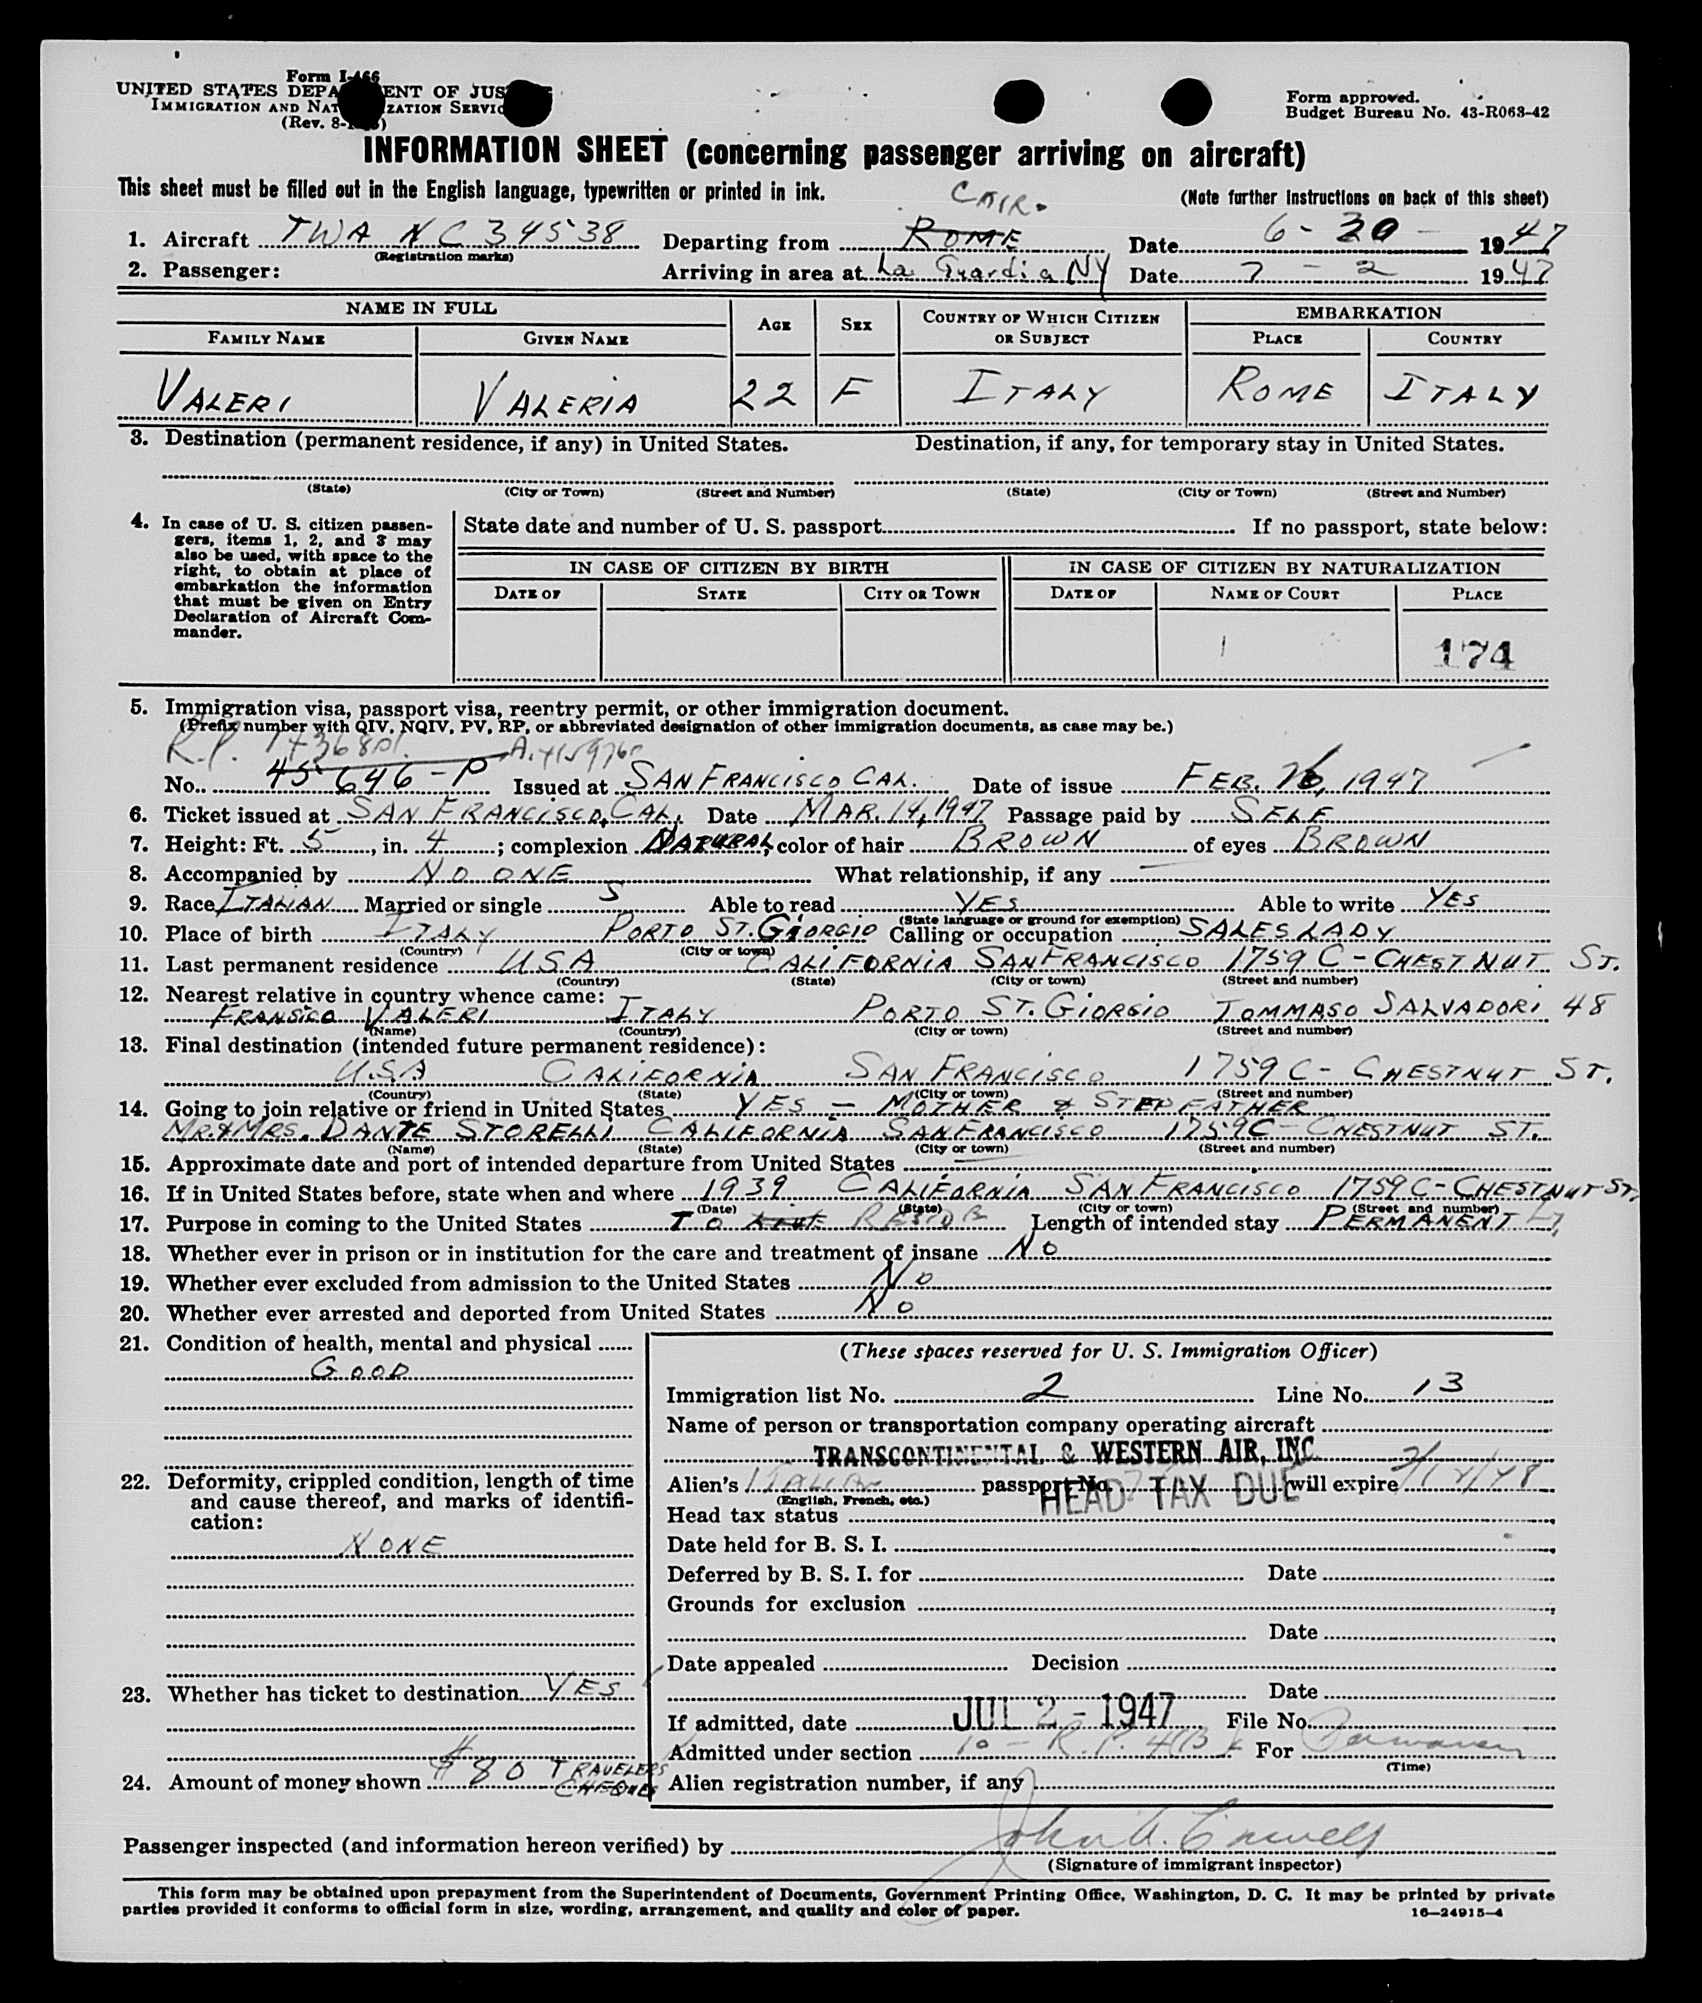 Form I-466
UNITED STATES DEPARTMENT OF JUSTICE
IMMIGRATION AND NATURALIZATION SERVICE
(Rev. 8-
Form approved.
Budget Bureau No. 43-R063-42
INFORMATION SHEET (concerning passenger arriving on aircraft)
This sheet must be filled out in the English language, typewritten or printed in ink.
(Note further instructions on back of this sheet)
CAIR.
1. Aircraft TWA NC 34538 Departing from ROME Date 6-30- 1947
(Registration marks)
2. Passenger: Arriving in area at La Guardia NY Date 7-2 1947
NAME IN FULL AGE SEX COUNTRY OF WHICH CITIZEN OR SUBJECT EMBARKATION
FAMILY NAME GIVEN NAME PLACE COUNTRY
VALERI VALERIA 22 F ITALY ROME ITALY
3. Destination (permanent residence, if any) in United States. Destination, if any, for temporary stay in United States.
(State) (City or Town) (Street and Number) (State) (City or Town) (Street and Number)
4. In case of U. S. citizen passengers, items 1, 2, and 3 may also be used, with space to the right, to obtain at place of embarkation the information that must be given on Entry Declaration of Aircraft Commander.
State date and number of U. S. passport If no passport, state below:
IN CASE OF CITIZEN BY BIRTH IN CASE OF CITIZEN BY NATURALIZATION
DATE OF STATE CITY OR TOWN DATE OF NAME OF COURT PLACE
174
5. Immigration visa, passport visa, reentry permit, or other immigration document.
(Prefix number with QIV, NQIV, PV, RP, or abbreviated designation of other immigration documents, as case may be.)
R.P.
No. 45646-P Issued at SAN FRANCISCO CAL. Date of issue FEB. 26, 1947
6. Ticket issued at SAN FRANCISCO, CAL. Date MAR. 14, 1947 Passage paid by SELF
7. Height: Ft. 5, in. 4; complexion NATURAL, color of hair BROWN of eyes BROWN
8. Accompanied by NO ONE What relationship, if any —
9. Race ITALIAN Married or single S Able to read YES Able to write YES
(State language or ground for exemption)
10. Place of birth ITALY PORTO ST. GIORGIO Calling or occupation SALESLADY
(Country) (City or town)
11. Last permanent residence USA CALIFORNIA SAN FRANCISCO 1759 C-CHESTNUT ST.
(Country) (State) (City or town) (Street and number)
12. Nearest relative in country whence came:
FRANSICO VALERI ITALY PORTO ST. GIORGIO TOMMASO SALVADORI 48
(Name) (Country) (City or town) (Street and number)
13. Final destination (intended future permanent residence):
U.S.A CALIFORNIA SAN FRANCISCO 1759 C- CHESTNUT ST.
(Country) (State) (City or town) (Street and number)
14. Going to join relative or friend in United States YES - MOTHER & STEP FATHER
MR & MRS. DANTE STORELLI CALIFORNIA SAN FRANCISCO 1759C-CHESTNUT ST.
(Name) (State) (City or town) (Street and number)
15. Approximate date and port of intended departure from United States —
16. If in United States before, state when and where 1939 CALIFORNIA SAN FRANCISCO 1759C-CHESTNUT ST.
(Date) (State) (City or town) (Street and number)
17. Purpose in coming to the United States TO RESIDE Length of intended stay PERMANENTLY
18. Whether ever in prison or in institution for the care and treatment of insane NO
19. Whether ever excluded from admission to the United States NO
20. Whether ever arrested and deported from United States NO
21. Condition of health, mental and physical
GOOD
22. Deformity, crippled condition, length of time and cause thereof, and marks of identification:
NONE
23. Whether has ticket to destination YES
24. Amount of money shown $80 TRAVELERS CHEQUES
(These spaces reserved for U. S. Immigration Officer)
Immigration list No. 2 Line No. 13
Name of person or transportation company operating aircraft
TRANSCONTINENTAL & WESTERN AIR, INC
Alien's Italian passport No. will expire
(English, French, etc.)
HEAD TAX DUE
Head tax status
Date held for B. S. I.
Deferred by B. S. I. for Date
Grounds for exclusion
Date
Date appealed Decision
Date
If admitted, date JUL 2 - 1947 File No.
Admitted under section For Permanen
(Time)
Alien registration number, if any
Passenger inspected (and information hereon verified) by
(Signature of immigrant inspector)
This form may be obtained upon prepayment from the Superintendent of Documents, Government Printing Office, Washington, D. C. It may be printed by private
parties provided it conforms to official form in size, wording, arrangement, and quality and color of paper.
16—24915-4